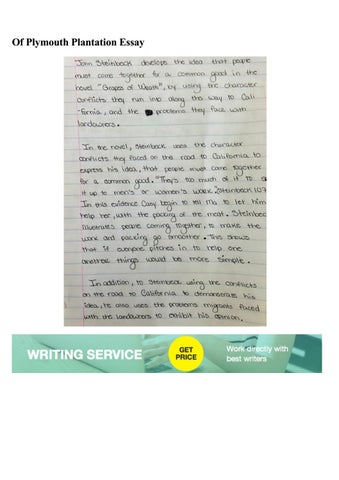 Of Plymouth Plantation Essay
John Steinbeck develops the idea that people
must come together for a common good in the
novel "Grapes of Wrath", by using the character
conflicts they run into along the way to Cali
-fornia, and the problems they face with
landowners.
In the novel, Steinbeck uses the character
conflicts they faced on the road to California to
express his idea, that people must come together
for a common good. "They's too much of it to
it up to men's or women's work." Steinbeck 107
In this evidence Casy begin to tell Ma to let him
help her, with the packing of the meat. Steinbec
illustrates people coming together, to make the
work and packing go smoother. This shows
that if everyone pitches in to help one
another things would be more simple.
In addition, to Steinbeck using the conflicts
on the road to California to demonstrate his
idea, he also uses the problems migrants faced
with the landowners to exhibit his opinion.
WRITING SERVICE
GET
PRICE
Work directly with
best writers